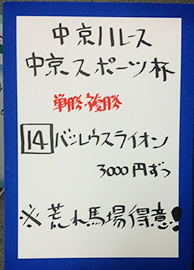 中京11レース
中京スポーツ杯
単勝・複勝
14 バシレウスライオン
3000円ずつ
※荒れ馬場得意!